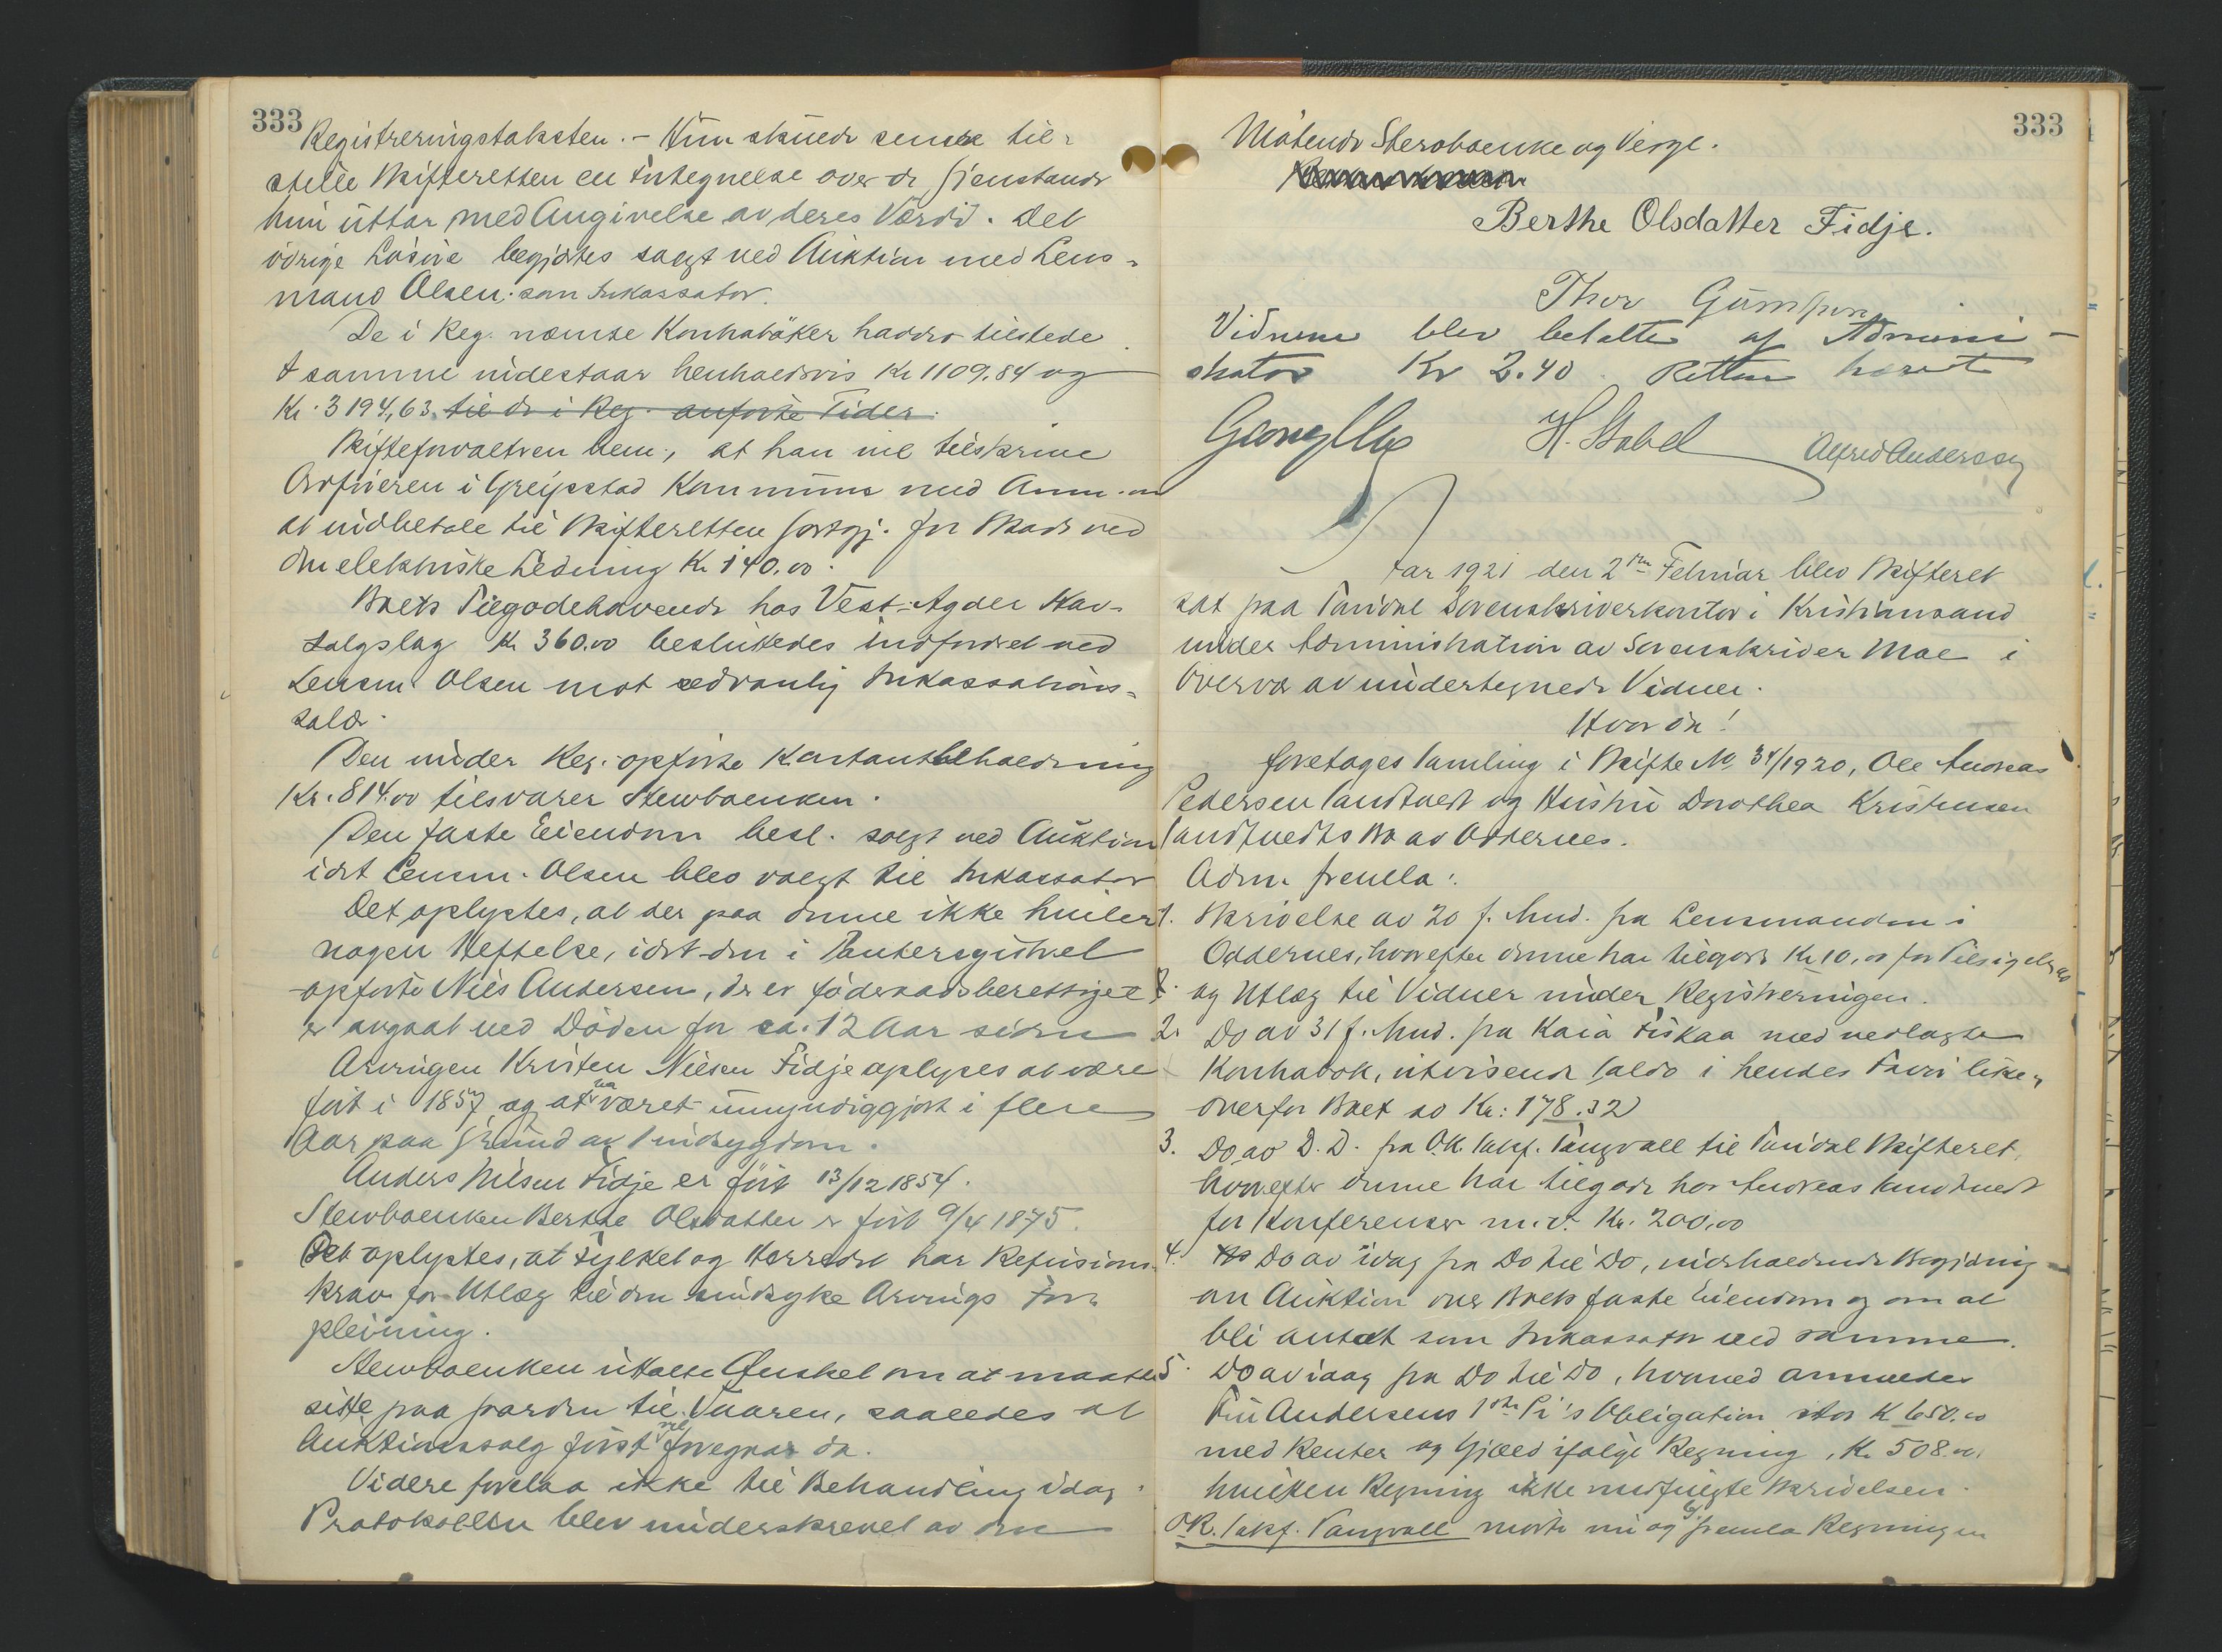 333
Registreringstaksten. - Hun skulde senere til-
stille Skifteretten en Fortegnelse over de Gjenstande
hun uttar med Angivelse av deres Værdi. Det
övrige Lösöre begjærtes solgt ved Auktion med Lens-
mand Olsen som Inkassator.
De i Reg. nævnte Kontraböker havdes tilstede
& samme indestaar henholdsvis Kr 1109,84 og
Kr. 3194,63. til de i Reg. anförte Tider.
Skifteforvalteren bem., at han vil tilskrive
Ordføreren i Greipstad Kommune med Anm. om
at indbetale til Skifteretten for Skade ved
den elektriske Ledning Kr 140.00.
Boets Tilgodehavende hos Vest-Agder
salgslag Kr 360.00 beslutedes indfordret ved
Lensm. Olsen mot sedvanlig Inkassations-
salær.
Den under Reg. opførte Kontantbeholdning
Kr. 814.00 tilsvarer Stervboenken.
Den faste Eiendom besl. solgt ved Auktion
idet Lensm. Olsen blev valgt til Inkassator
Det oplystes, at der paa denne ikke hviler
nogen Heftelse, idet den i Panteregistret
opførte Nils Andersen, der er föderaadsberettiget
er avgaat ved Döden for ca. 12 Aar siden
Arvingen Kristen Nilsen Fidje oplyses at være
født i 1857 og at ha været umyndiggjort i flere
Aar paa Grund av Sindsygdom.
Anders Nilsen Fidje er født 13/12 1854.
Stervboenken Berthe Olsdatter er født 9/4 1875.
Det oplystes, at Fylket og Herredet har Refusions-
krav for Utlæg til den sindsyke Arvings For-
pleining.
Stervboenken uttalte Ønsket om at maatte
sitte paa Garden til Vaaren, saaledes at
Auktionssalg først vel foregaar da.
Videre forelaa ikke til Behandling idag.
Protokollen blev underskrevet av den
333
Mötende Stervboenke og Verge.
Berthe Olsdatter Fidje.
Thor
Vidnene blev betalte af Admini-
strator Kr 2.40. Retten hævet
H. Stabel Alfred Andersen
Aar 1921 den 2den Februar blev Skifteret
sat paa Torridal Sorenskriverkontor i Kristianssand
under Administration av Sorenskriver Moe i
Overvær av undertegnede Vidner.
Hvor da!
foretages Samling i Skifte No 34/1920, Ole Andreas
Pedersen Sandtvedt og Hustru Dorothea Kristensen
Sandtvedts Bo av Oddernes.
Adm. fremla:
1. Skrivelse av 20 f. Mnd. fra Lensmanden i
Oddernes, hvorefter denne har tilgode Kr 10,00 for Tilsigelse
og Utlæg til Vidner under Registreringen.
2. Do av 31 f. Mnd. fra Kaia Fiskaa med vedlagte
Kontrabok, utvisende Saldo i hendes Favör like-
overfor Boet av Kr: 178.32
3. Do av D. D. fra O.R. Sakf. Tangvall til Torridal Skifteret,
hvorefter denne har tilgode hos Andreas Sandtvedt
for Konferenser m. v. Kr. 200,00
4. Do av idag fra Do til Do, inderholdende Begjæring
om Auktion over Boets faste Eiendom og om at
bli antat som Inkassator ved samme.
5. Do av idag fra Do til Do, hvorved anmeldes
Fru Andersens 1ste Pr's Obligation stor K 650.00
med Renter og Gjæld ifølge Regning, Kr 508.00
hvilken Regning ikke medfulgte Skrivelsen.
O.R. Sakf. Tangvall møtte nu og fremla Regningen